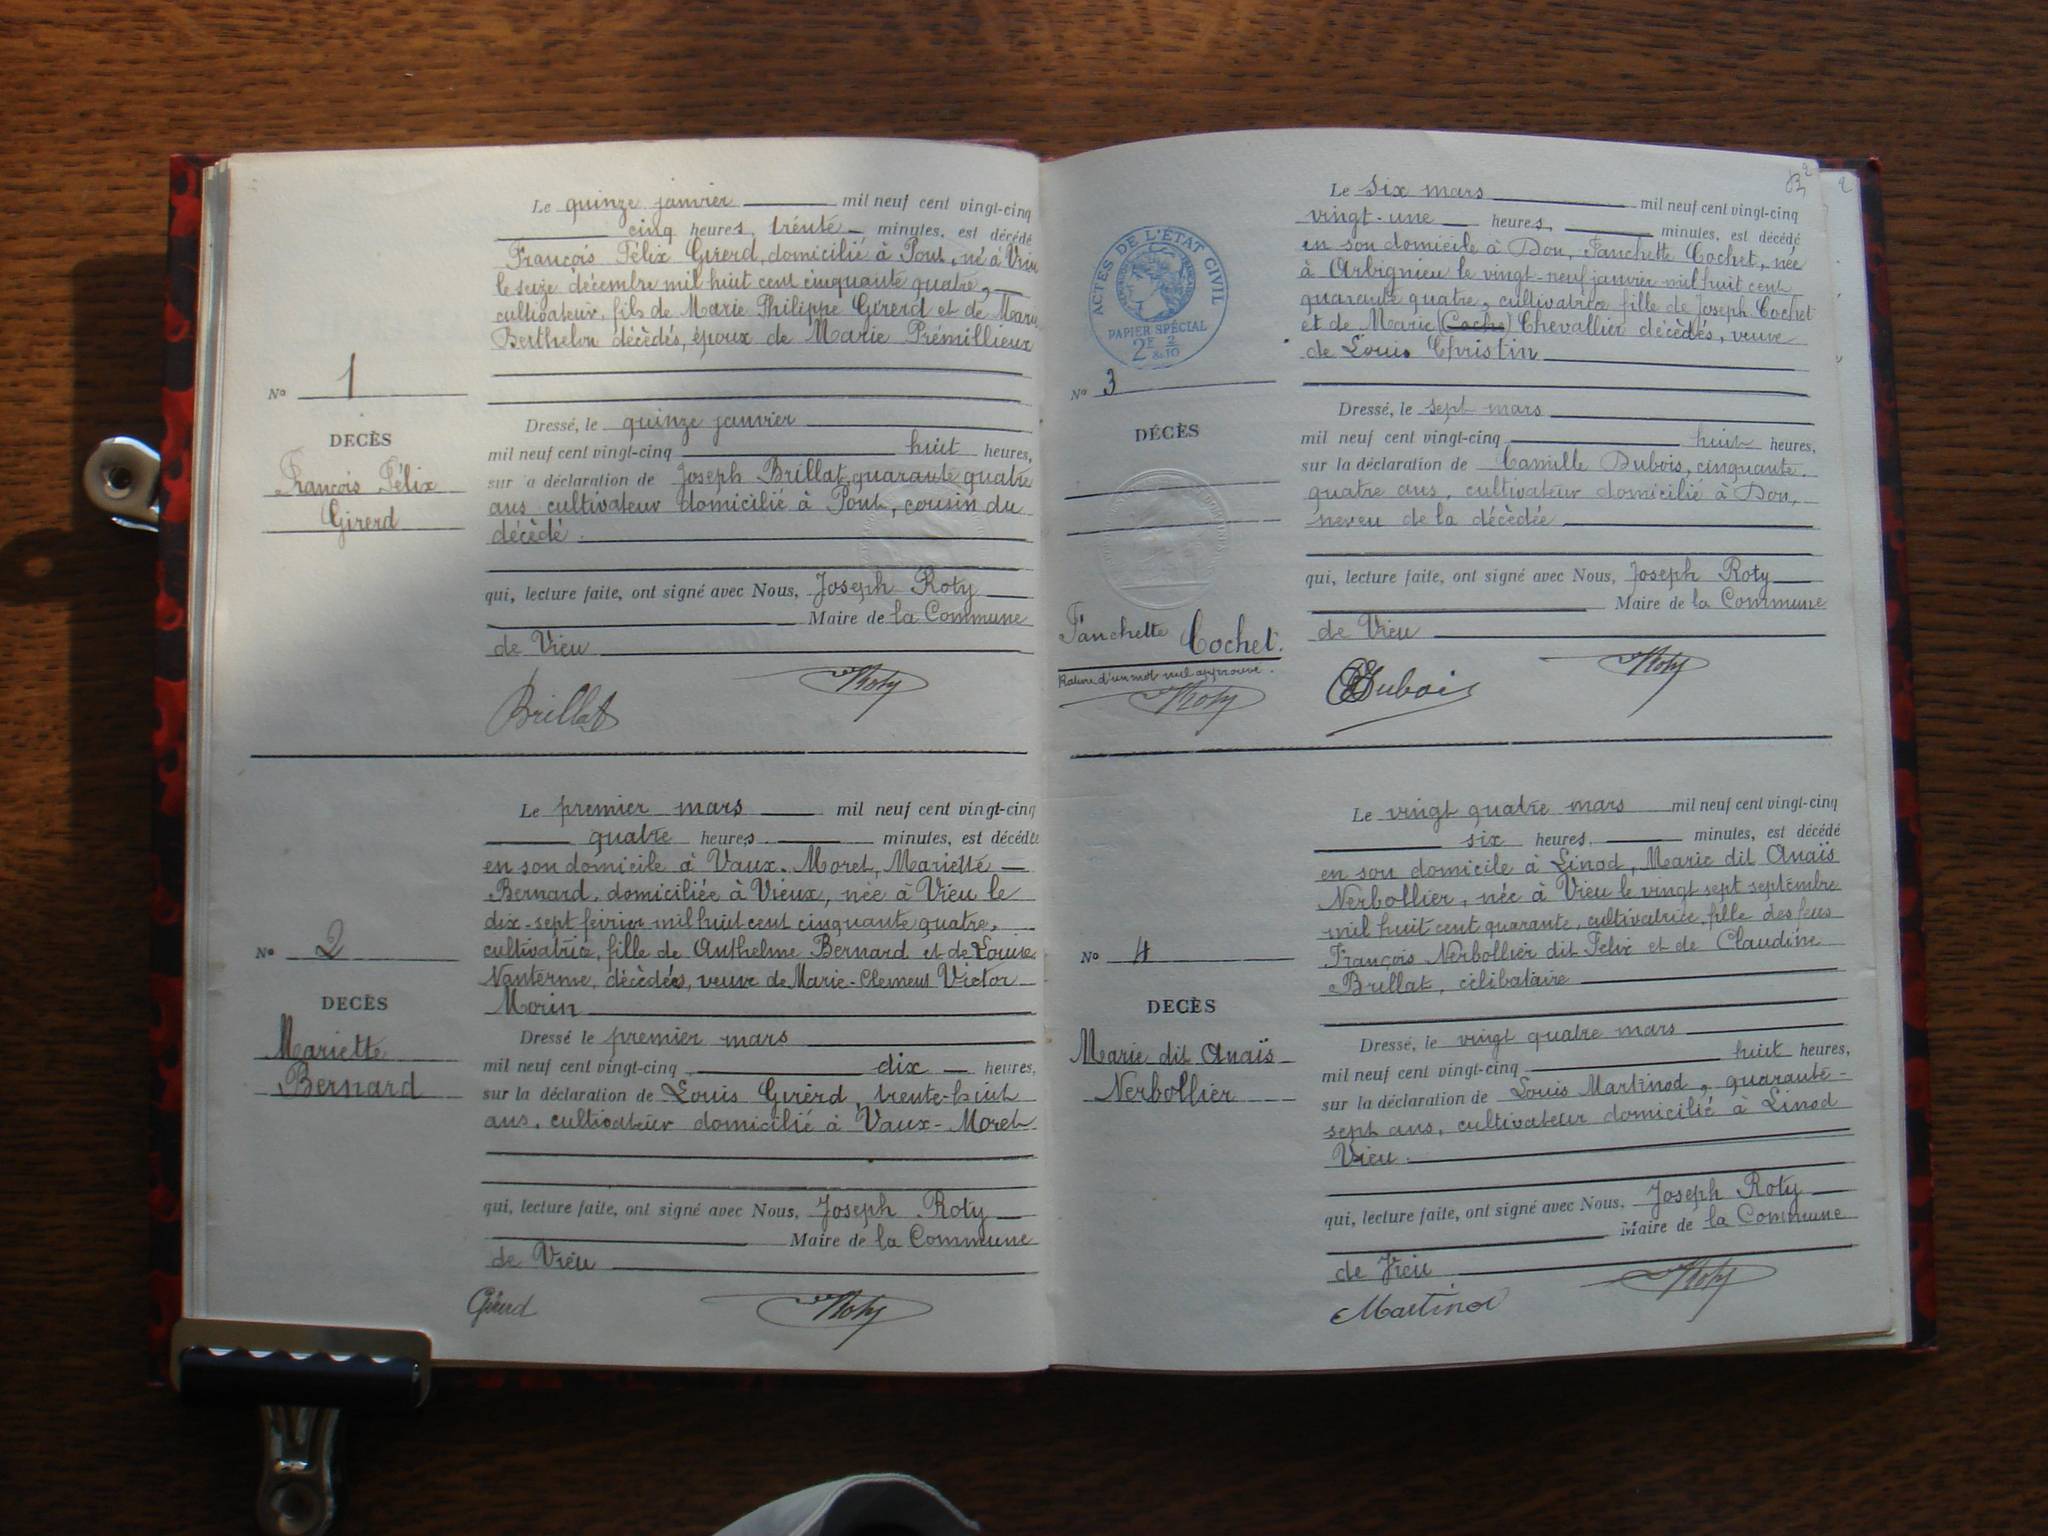 Le quinze janvier mil neuf cent vingt-cinq
cinq heures, trente minutes, est décédé
François Félix Girerd, domicilié à Pont, né à Vieu
le seize décembre mil huit cent cinquante quatre,
cultivateur, fils de Marie Philippe Girerd et de Marie
Berthelon décèdés, époux de Marie Prémillieux
No 1
DECÈS
François Félix
Girerd
Dressé, le quinze janvier
mil neuf cent vingt-cinq huit heures,
sur a déclaration de Joseph Brillat, quarante quatre
ans cultivateur domicilié à Pont, cousin du
décèdé.
qui, lecture faite, ont signé avec Nous, Joseph Roty
Maire de la Commune
de Vieu
Brillat Roty
Le premier mars mil neuf cent vingt-cinq
quatre heures, minutes, est décédée
en son domicile à Vaux-Moret, Mariette
Bernard, domiciliée à Vieux, née à Vieu le
dix-sept février mil huit cent cinquante quatre,
cultivatrice, fille de Anthelme Bernard et de Louise
Nanterme, décèdés, veuve de Marie-Clement Victor
Morin
No 2
DECÈS
Mariette
Bernard
Dressé le premier mars
mil neuf cent vingt-cinq dix heures,
sur la déclaration de Louis Girerd, trente-huit
ans, cultivateur domicilié à Vaux-Moret
qui, lecture faite, ont signé avec Nous, Joseph Roty
Maire de la Commune
de Vieu
Girerd Roty
2
2
Le six mars mil neuf cent vingt-cinq
vingt-une heures, minutes, est décédé
en son domicile à Don, Fanchette Cochet, née
à Arbignieu le vingt-neuf janvier mil huit cent
quarante quatre, cultivatrice fille de Joseph Cochet
et de Marie (Coche) Chevallier décèdés, veuve
de Louis Christin
ACTES DE L'ÉTAT CIVIL
RÉPUBLIQUE FRANÇAISE
PAPIER SPÉCIAL
2F & 2/10
No 3
DÉCÈS
Fanchette Cochet.
Rature d'un mot nul approuvé.
Roty
Dressé, le sept mars
mil neuf cent vingt-cinq huit heures,
sur la déclaration de Camille Dubois, cinquante
quatre ans, cultivateur domicilié à Don,
neveu de la décèdée
qui, lecture faite, ont signé avec Nous, Joseph Roty
Maire de la Commune
de Vieu
CDubois Roty
Le vingt quatre mars mil neuf cent vingt-cinq
six heures, minutes, est décédé
en son domicile à Linod, Marie dit Anaïs
Nerbollier, née à Vieu le vingt sept septembre
mil huit cent quarante, cultivatrice, fille des feus
François Nerbollier dit Felix et de Claudine
Brillat, célibataire
No 4
DECÈS
Marie dit Anaïs
Nerbollier
Dressé, le vingt quatre mars
mil neuf cent vingt-cinq huit heures,
sur la déclaration de Louis Martinod, quarante-
sept ans, cultivateur domicilié à Linod
Vieu.
qui, lecture faite, ont signé avec Nous, Joseph Roty
Maire de la Commune
de Vieu
Martinod Roty